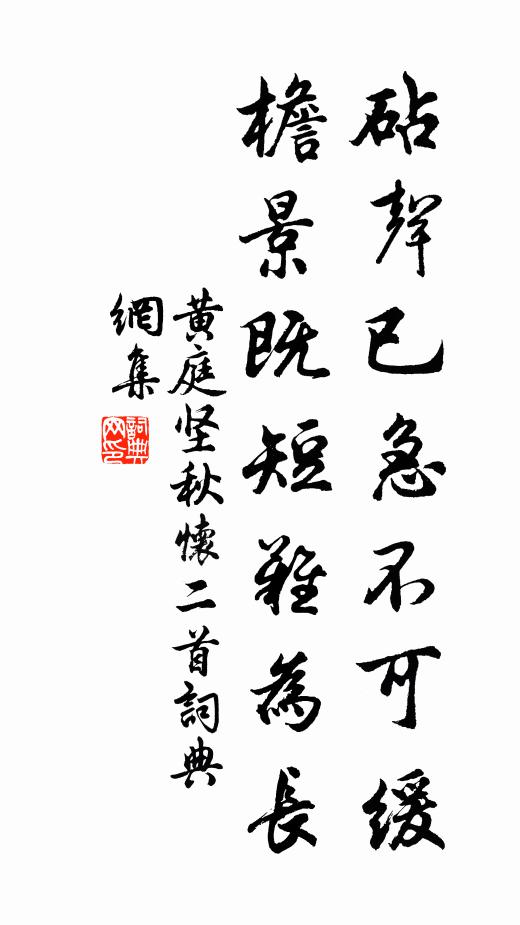 砧聲已急不可緩
檐景既短難為長
黄庭坚秋懷二首詞典
網集
詞典
网印